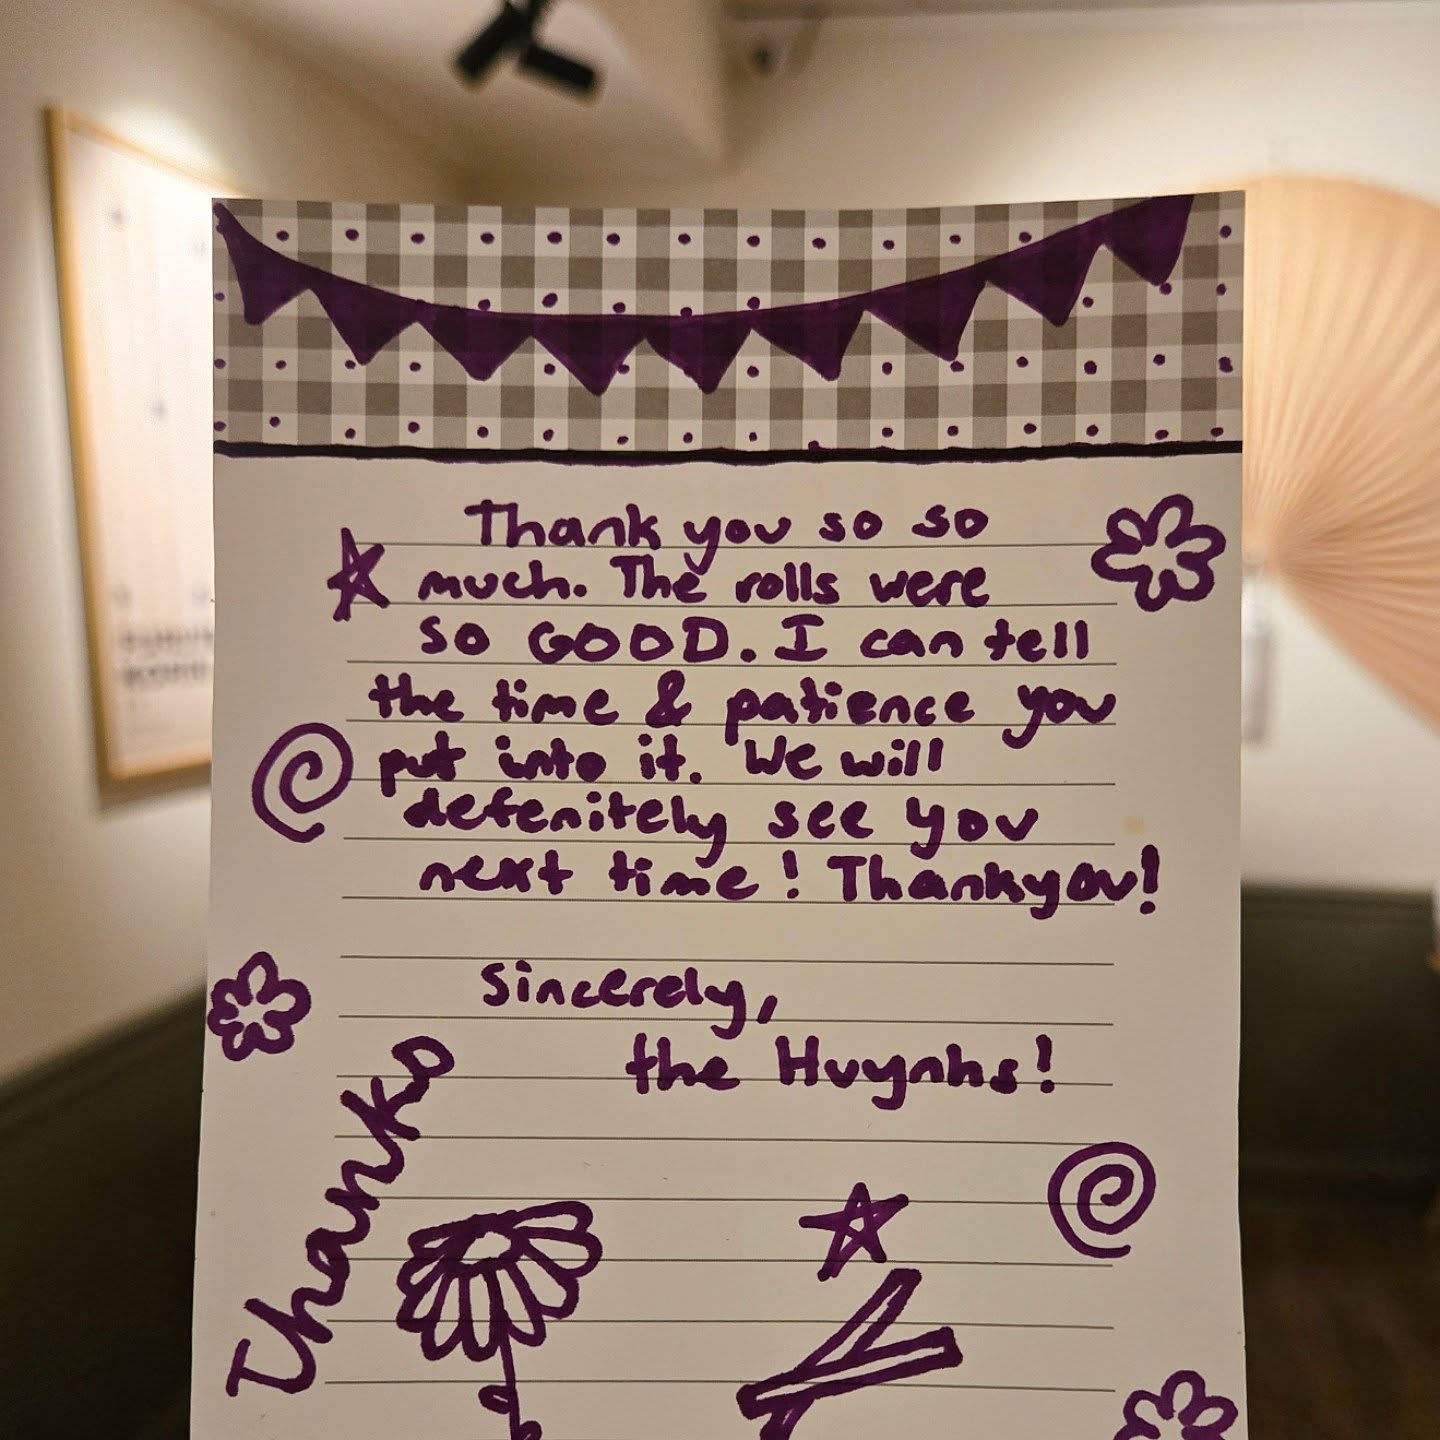 Thank you so so
much. The rolls were
so GOOD. I can tell
the time & patience you
put into it. We will
defenitely see you
next time! Thankyou!
Sincerely,
the Huynhs!
Thanks